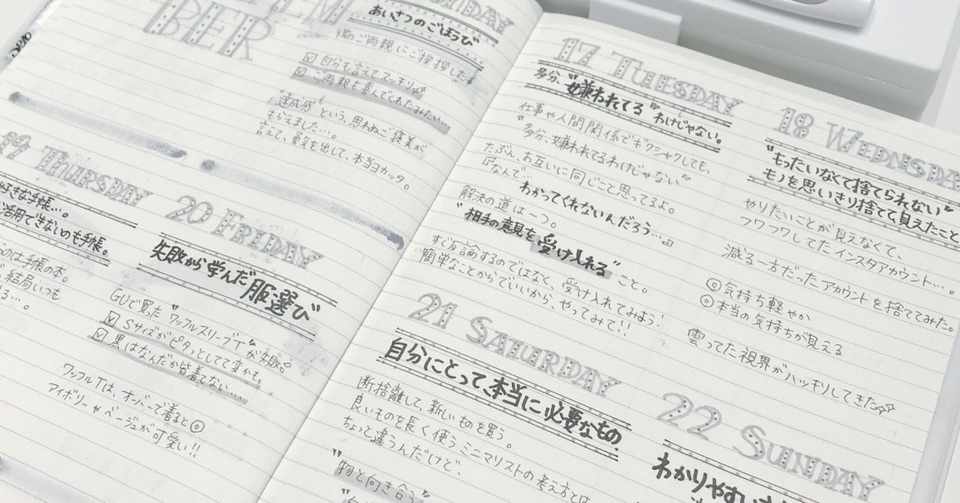 BER
あいさつのごほうび
のご両親にご挨拶した。
"達成感"という、思わぬご褒美が
もらえました…。
言えて、勇気を出して、本当ヨカッタ。
THURSDAY
好きな手帳…。
活用できないのも手帳。
のは手帳の本。
結局いつも
20 FRIDAY
失敗から学んだ服選び
GUで買った"ワッフルスリーブT"が失敗。
Sサイズがピタッとしてて変かも。
黒はなんだか皆着てない……。
ワッフルTは、オーバーで着ると◎
アイボリーやベージュが可愛い!!
17 TUESDAY
多分、"嫌われてる"わけじゃない。
仕事や人間関係でギクシャクしても、
"多分、嫌われてるわけじゃない"
たぶん、お互いに同じこと思ってるよ。
なんで
わかってくれないんだろう…。
解決の道は一つ。
"相手の意見を受け入れる"こと。
すぐ反論するのではなく、受け入れてみよう!
簡単なことからでいいから、やってみて!!
18 WEDNESDA
"もったいなくて捨てられない"
モノを思いきり捨てて見えたこと
やりたいことが見えなくて、
フワフワしてたインスタアカウント…。
減る一方だったアカウントを捨ててみた。
◎気持ち軽やか
◎本当の気持ちが見える
曇ってた視界がハッキリしてきた☆☆
21 SATURDAY
自分にとって、本当に必要なもの。
断捨離して、新しいものを買う。
良いものを長く使うミニマリストの考え方とは
ちょっと違うんだけど、
"物と向き合う"
22 SUNDAY
わかりやすい